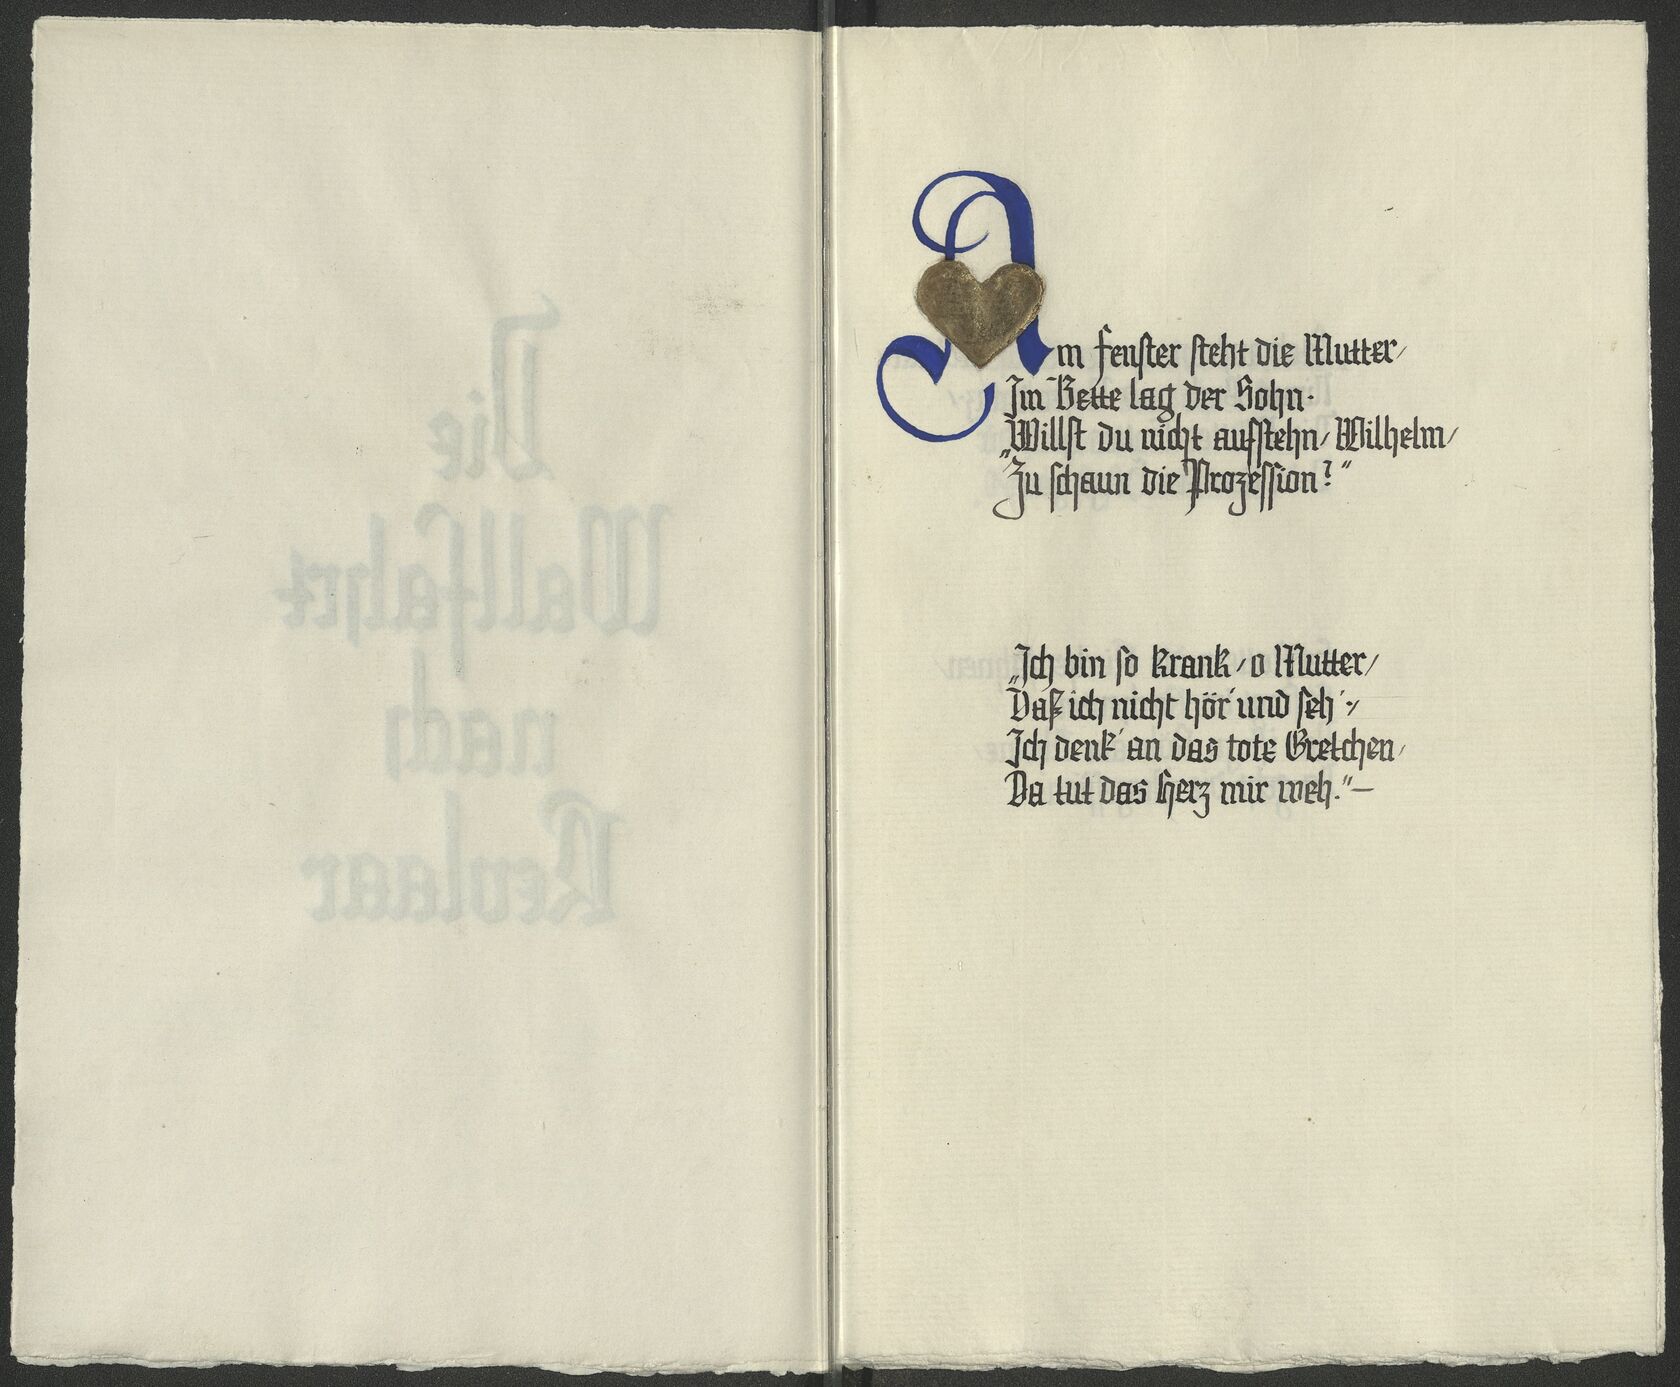 Die
Wallfahrt
nach
Kevlaar
Am Fenster steht die Mutter/
Im Bette lag der Sohn.
„Willst du nicht aufstehn/ Wilhelm/
Zu schaun die Prozession?“
„Ich bin so krank/ o Mutter/
Daß ich nicht hör' und seh'./
Ich denk' an das tote Gretchen/
Da tut das Herz mir weh.“—